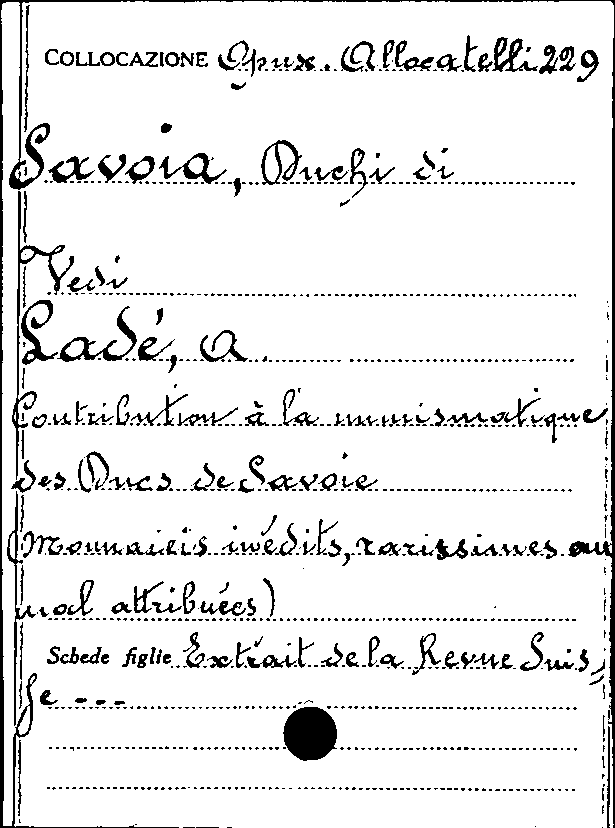 COLLOCAZIONE Opus. Allocatelli 229
Savoia, Duchi di
Vedi
Ladé, A.
Contribution à la numismatique
des Ducs de Savoie
(Monnaieis inédits, rarissimes ou
mal attribuées)
Schede figlie Extrait de la Revue Suis=
se ---